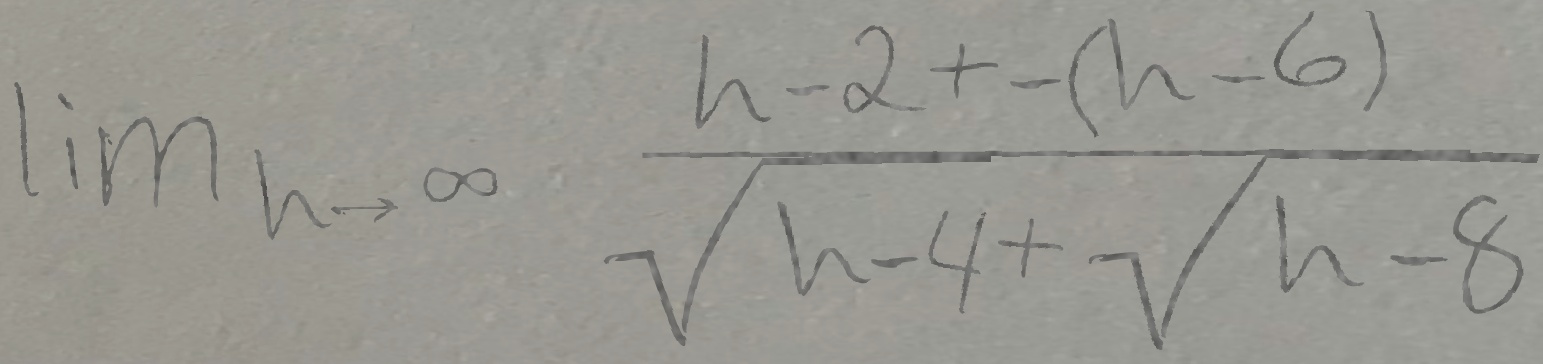 lim h→∞ h-2+-(h-6) / √h-4+√h-8